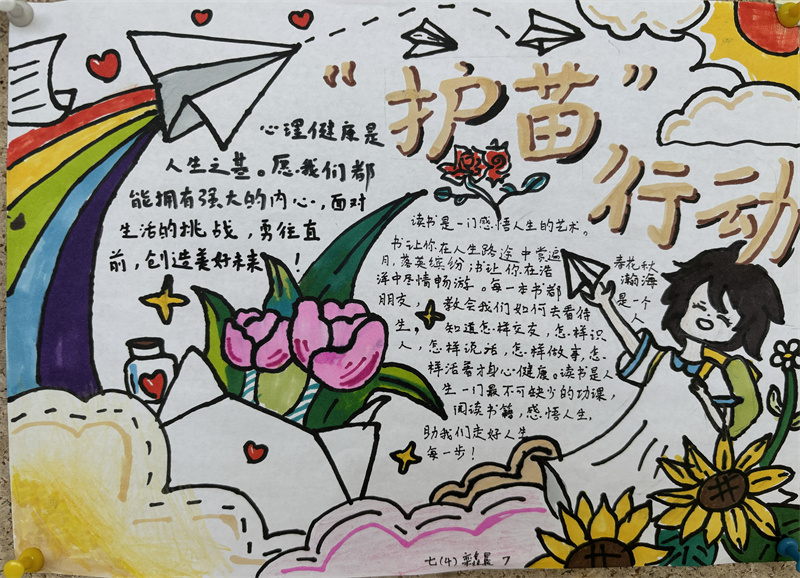 “护苗”
行动
心理健康是
人生之基。愿我们都
能拥有强大的内心,面对
生活的挑战,勇往直
前,创造美好未来!
读书是一门感悟人生的艺术。
书让你在人生路途中赏遍春花秋
月,落英缤纷;书让你在浩瀚海
洋中尽情畅游。每一本书都是一个
朋友,教会我们如何去看待人
生,知道怎样交友,怎样识
人,怎样说话,怎样做事,怎
样活着才身心健康。读书是人
生一门最不可缺少的功课,
阅读书籍,感悟人生,
助我们走好人生
每一步!
七(4)